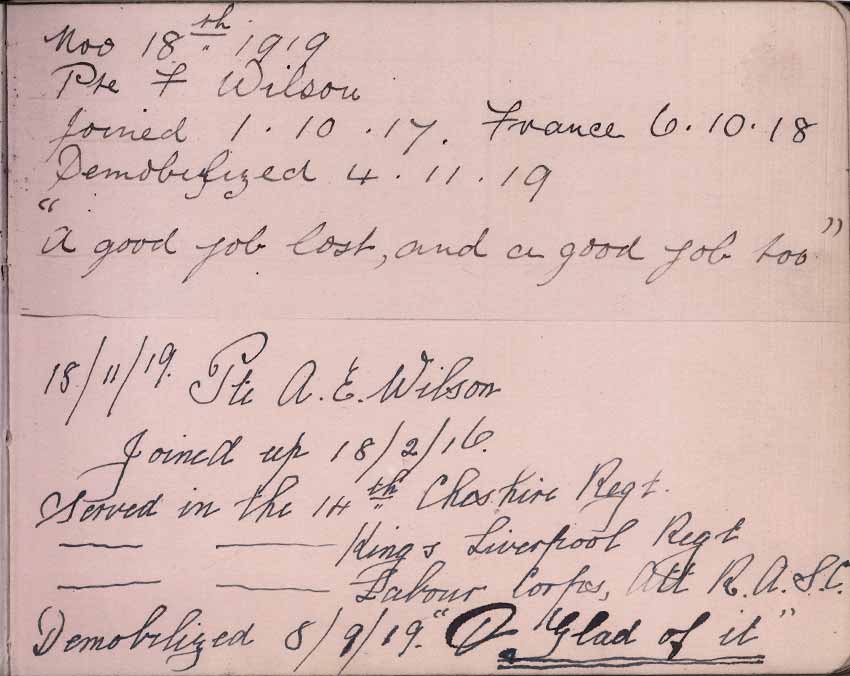 Nov 18th 1919
Pte F Wilson
Joined 1.10.17. France 6.10.18
Demobilized 4.11.19
"A good job lost, and a good job too"
18/11/19. Pte A.E. Wilson
Joined up 18/2/16.
Served in the 14th Cheshire Regt.
— — Kings Liverpool Regt
— — Labour Corps, Att R.A.S.C.
Demobilized 8/9/19. " Glad of it"